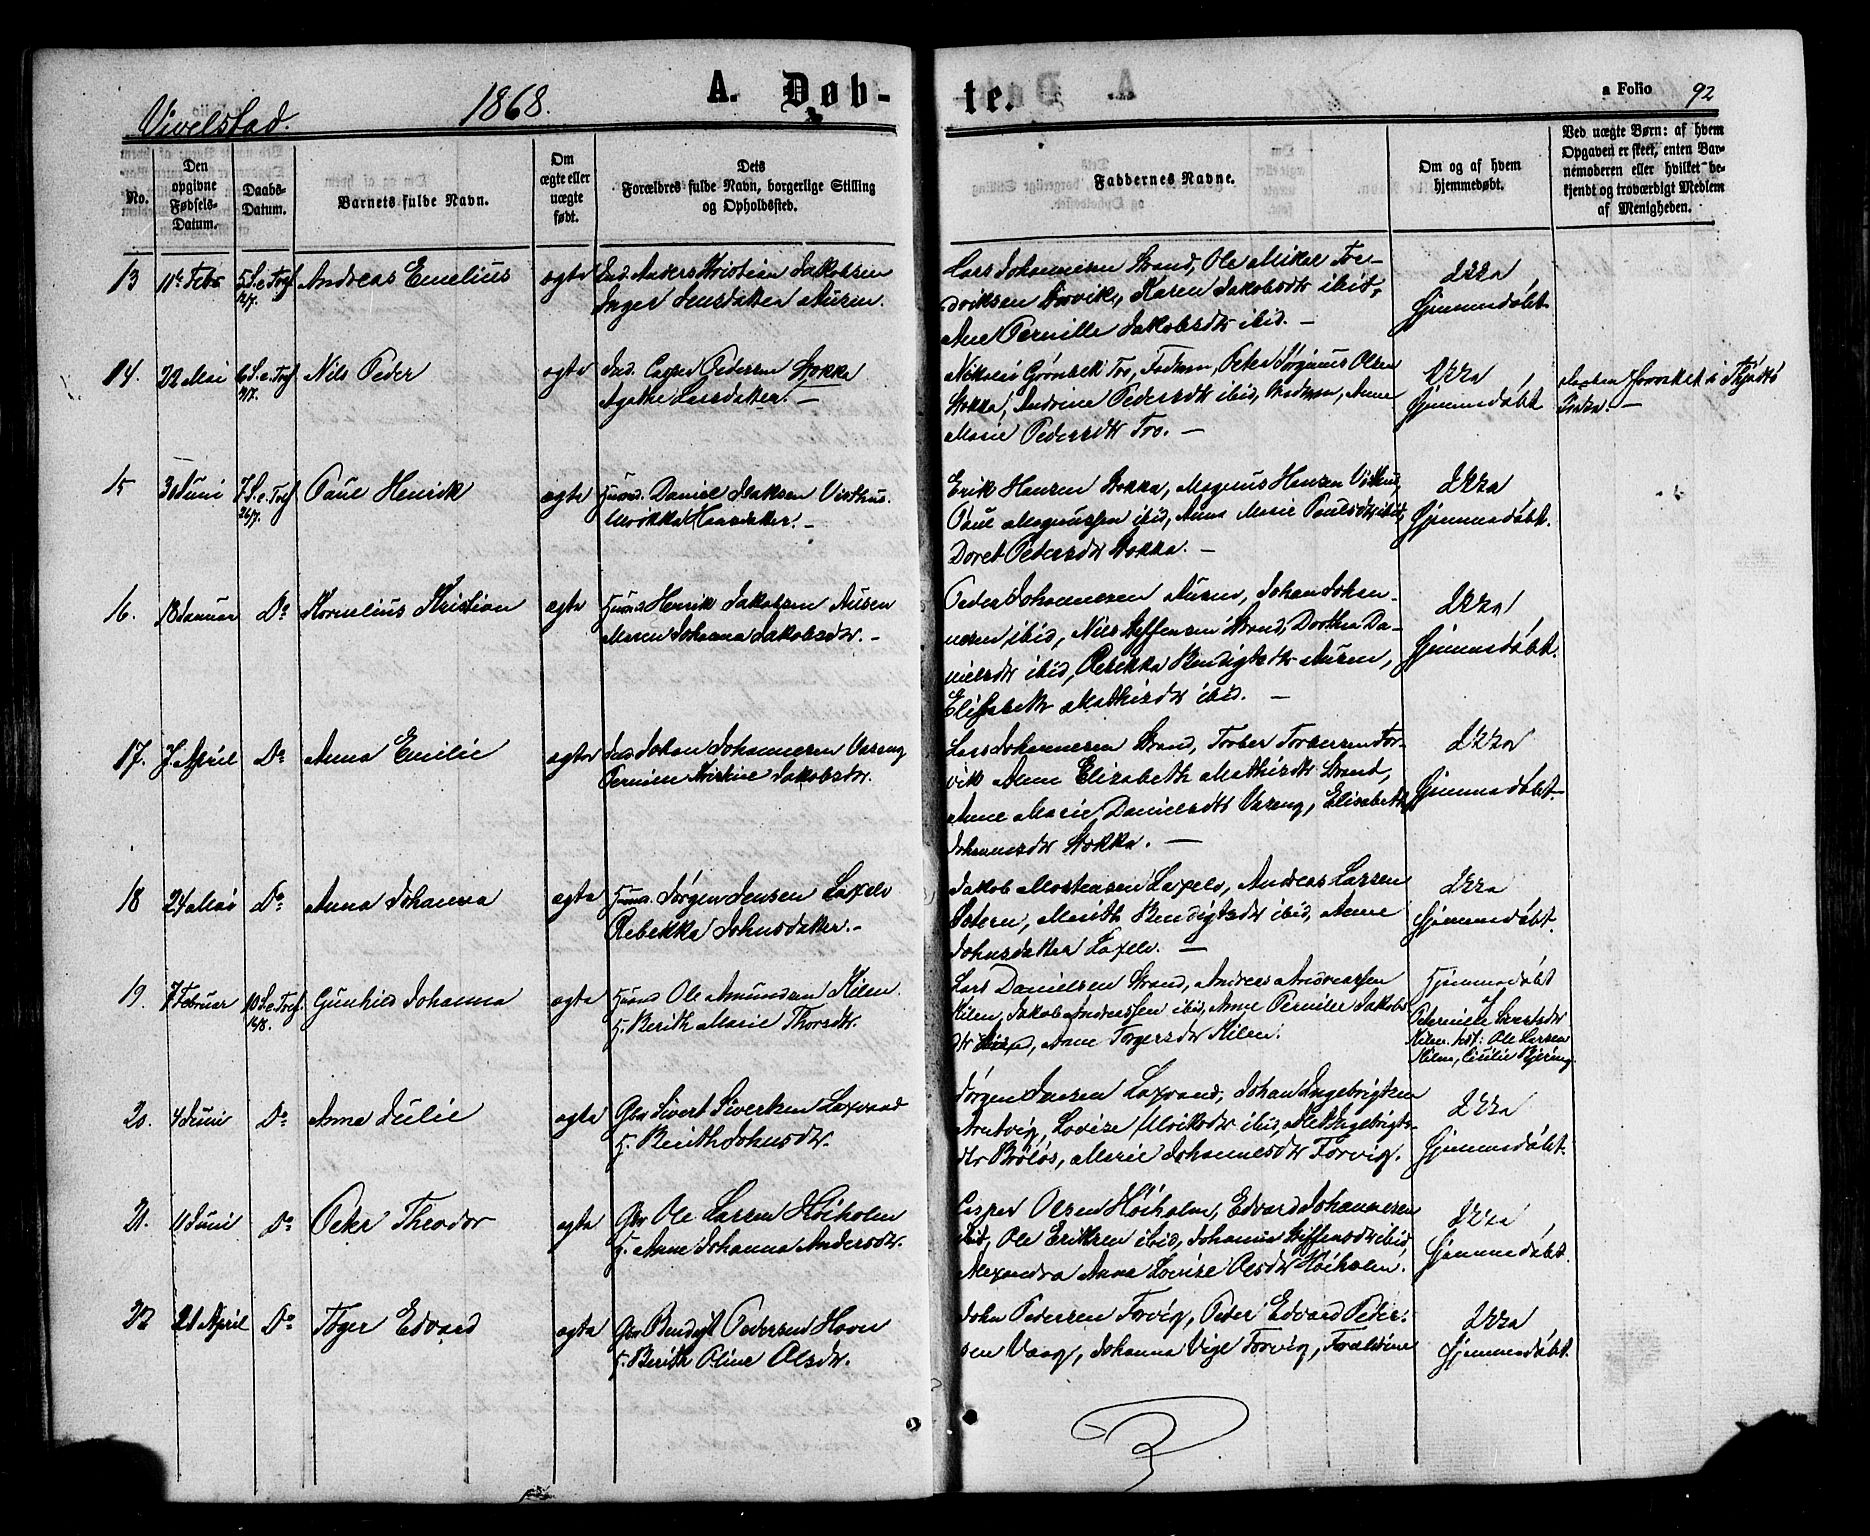 Vivelstad. 1868. A. Døb-
te. a Folio 92
No.
Den opgivne Fødsels-Datum.
Daabs-Datum.
Barnets fulde Navn.
Om ægte eller uægte født.
Dets
Forældres fulde Navn, borgerlige Stilling
og Opholdssted.
Faddernes Navne.
Om og af hvem
hjemmedøbt.
Ved uægte Børn: af hvem
Opgaven er skeet, enten Bar-
nemoderen eller hvilket be-
kjendt og troværdigt Medlem
af Menigheden.
13 11te Febr 5 S. e. Tref 12/7. Andreas Emelius ægte Ind. Anders Kristian Jakobsen
Inger Jensdatter Ausen.
Lars Johannesen Strand, Ole Mikal Fre-
driksen Forvik, Karen Jakobsdtr ibid,
Ane Pernille Jakobsdtr ibid. —
Ikke
Hjemmedøbt
14. 22 Mai 6 S. e. Tref Nils Peder ægte Ind. Casper Pedersen Stokka
Agathe Larsdatter. —
Nikolai Grønbek Tro, Peter Jørginus Olsen
Stokka, Andrine Pedersdtr ibid, Anne
Marie Pedersdtr Tro. —
Ikke
Hjemmedøbt
15 3 Juni 7 S. e. Tref 26/7. Paul Henrik ægte Huusmd. Daniel Isaksen Visthus.
Haasdatter. —
Erik Hansen Stokka, Magnus Hansen Visthus,
Paul Magnussen ibid, Anna Marie Paulsdtr ibid,
Doret Pedersdtr Stokka. —
Ikke
Hjemmedøbt.
16. 18 Januar Do Kornelius Kristian ægte Huusmd Henrik Jakobsen Ausen
Maren Johanna Jakobsdtr. —
Peder Johannesen Ausen, Johan Johan-
nesen ibid, Nils Steffensen Strand, Dorthea Da-
nielsdtr ibid, Rebekka Bendigtsdtr Ausen,
Elisabeth Mathisdtr ibid. —
Ikke
Hjemmedøbt.
17. 7 April Do Anna Emilie ægte Ind Johan Johannesen Vareng
Kirstine Jakobsdtr.
Lars Johannesen Strand, Torber Torbersen For-
vik Anne Elizabeth Mathisdtr Strand,
Anne Marie Danielsdtr Vareng, Elisabeth
Johannesdtr Stokka. —
Ikke
Hjemmedøbt.
18 24 Mai Do Anna Johanna ægte Huusmd. Jørgen Jensen Laxelv
Rebekka Johnsdatter. —
Jakob Mortensen Laxelv, Andreas Larsen
Sotern, Marith Bendigtsdtr ibid, Anne
Johnsdatter Laxelv. —
Ikke
Hjemmedøbt.
19. 7 Februar 10 S. e. Tref. 16/8. Gunhild Johanna ægte Huusmd Ole Amundsen Kilen
H. Berith Marie Thorsdtr.
Lars Danielsen Strand, Andreas Andreassen
Kilen, Jakob Andreassen ibid, Anne Pernille Jakobs-
dtr, Anne Torgersdtr Kilen.
Hjemmedøbt
af
Sivertsdtr
Kilen. Test: Ole Larsen
Kilen, Cicilie Bjering.
20. 4 Juni Do Anna Julie ægte Gbr Sivert Sivertsen Laxvand
H. Berith Johnsdtr.
Jørgen Jensen Laxvand, Johan Ingebrigtsen
Lovise Ulriksdtr ibid, Mett Ingebrigts-
dtr Brøløs, Marie Johannesdtr Forvig.
Ikke
Hjemmedøbt.
21. 11 Juni Do Peter Theodor ægte Gbr Ole Larsen Høiholm
H. Anne Johanna Andersdtr.
Casper Olsen Høiholm, Edvard Johannesen
ibid, Ole Eriksen ibid, Johanna Steffensdtr ibid,
Alexandra Anna Lovise Olsdtr Høiholm.
Ikke
Hjemmedøbt.
22 21 April Do Tøger Edvard ægte Gbr Bendigt Pedersen Havn
H. Berith Oline Olsdtr.
John Pedersen Forvig, Peder Edvard Peder-
sen Vaag, Johanna Vige Forvig,
Ikke
Hjemmedøbt.